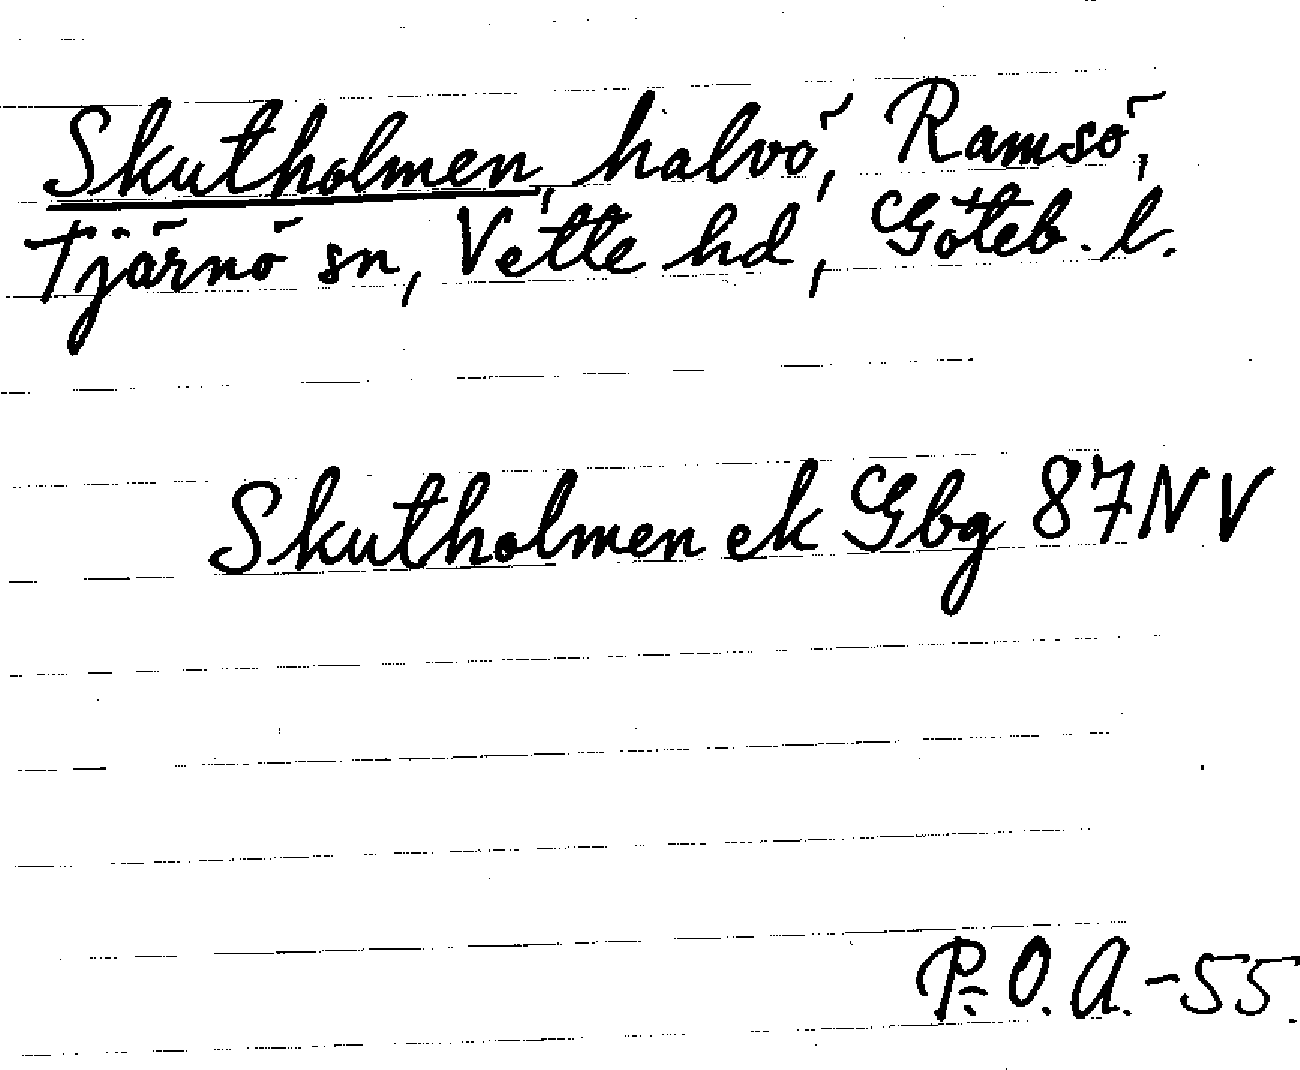 Skutholmen, halvö, Ramsö,
Tjärnö sn, Vette hd, Göteb. l.
Skutholmen ek Gbg 87NV
P.O.A.-55.